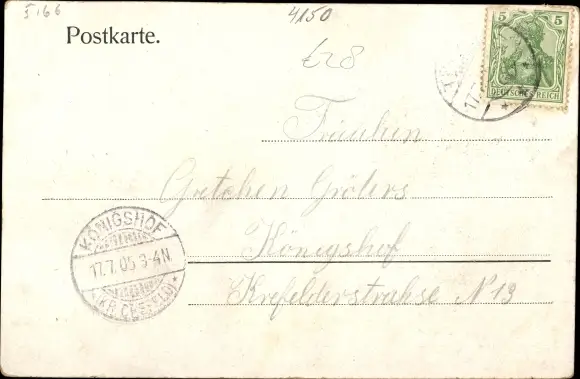 I 166
4150
Postkarte.
£28
5 5
DEUTSCHES REICH
17.
Fräulein
Gretchen Gröters
Königshof
Krefelderstrahse № 19
KÖNIGSHOF
17.7.05 3-4N.
(KR. CREFELD)